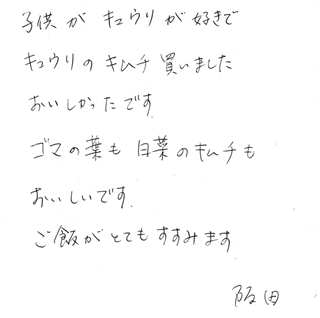 子供がキュウリが好きで
キュウリのキムチ買いました
おいしかったです
ゴマの葉も白菜のキムチも
おいしいです.
ご飯がとてもすすみます
阪田